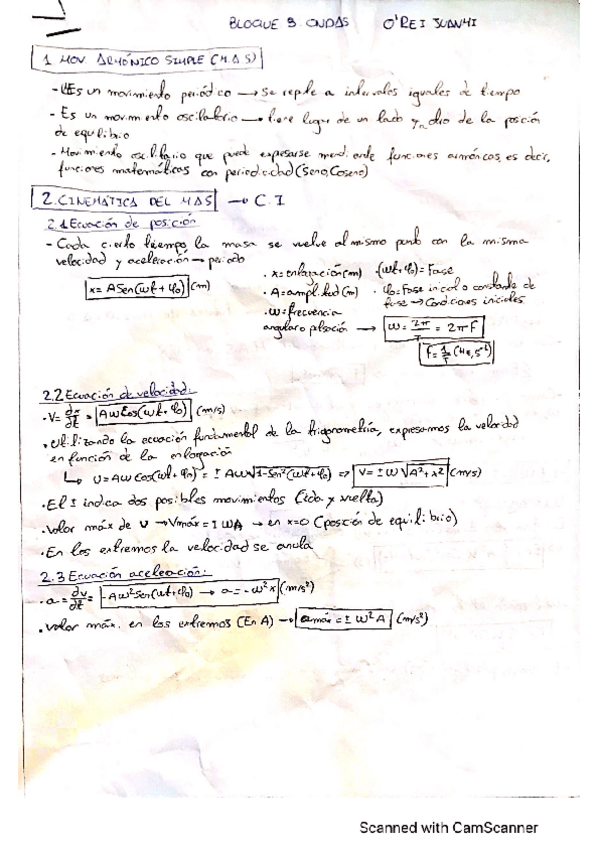 BLOQUE 3. ONDAS O'REI JUANMI
1 MOV. ARMÓNICO SIMPLE (M.A.S)
- Es un movimiento periódico → Se repite a intervalos iguales de tiempo
- Es un movimiento oscilatorio → tiene lugar de un lado y otro de la posición
de equilibrio
- Movimiento oscilatorio que puede expresarse mediante funciones armónicas, es decir,
funciones matemáticas con periodicidad (Seno, Coseno)
2. CINEMÁTICA DEL MAS → C.I
2.1 Ecuación de posición
- Cada cierto tiempo, la masa se vuelve al mismo punto con la misma
velocidad y aceleración → periodo
x = A Sen(ωt + φ₀) (m)
· x = enlogación (m) · (ωt+φ₀) = Fase
· A = amplitud (m) · φ₀ = Fase inicial o constante de
fase → Condiciones iniciales
· ω = frecuencia
angular o pulsación → ω = 2π/T = 2πF
F = 1/T (Hz, s⁻¹)
2.2 Ecuación de velocidad:
· V = ∂x/∂t = Aω Cos(ωt + φ₀) (m/s)
· Utilizando la ecuación fundamental de la trigonometría, expresamos la velocidad
en función de la enlogación
↳ v = Aω Cos(ωt+φ₀) = ± Aω√1-Sen²(ωt+φ₀) ⇒ V = ± ω √A²+x² (m/s)
· El ± indica dos posibles movimientos (ida y vuelta)
· Valor máx de v → Vmáx = ± ωA → en x=0 (posición de equilibrio)
· En los extremos la velocidad se anula
2.3 Ecuación aceleración:
· a = ∂v/∂t = -Aω² Sen(ωt+φ₀) → a = -ω²x (m/s²)
· Valor máx. en los extremos (En A) → amáx = ± ω² A (m/s²)
Scanned with CamScanner